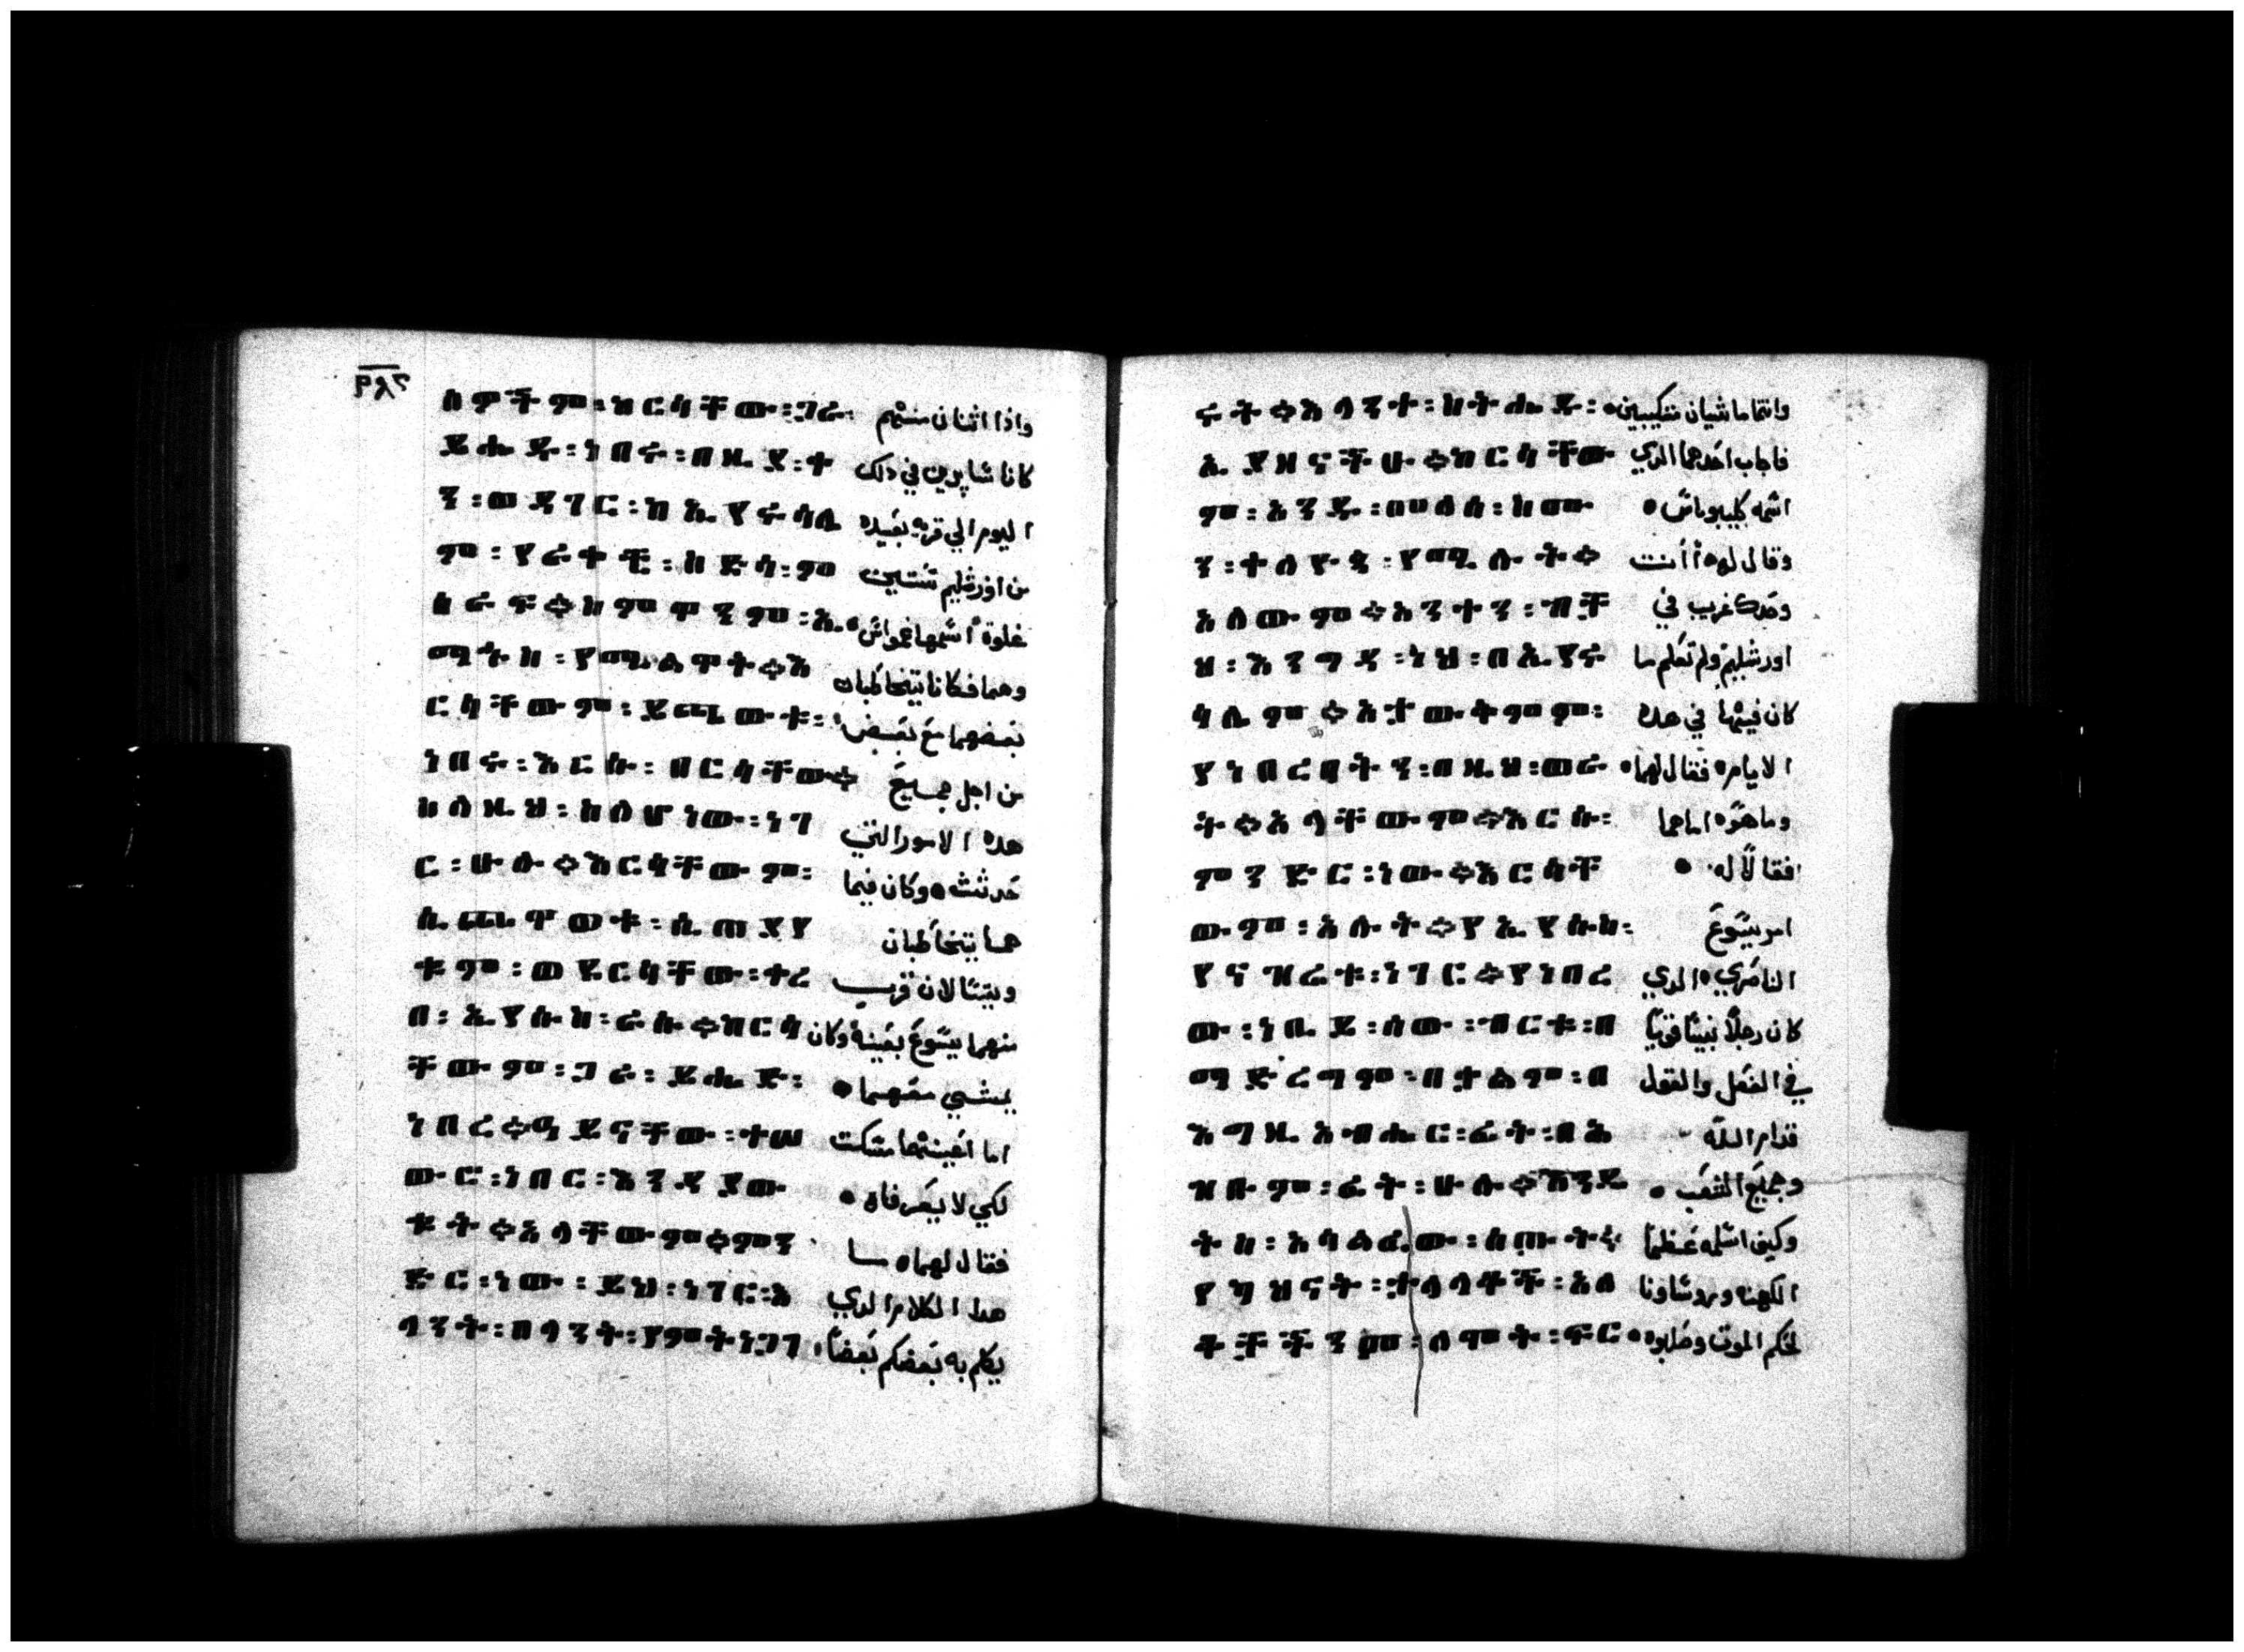 ٢٨٩
ሰዎችም፡ከርሳቸው፡ጋራ፡ واذا اثنان منهم
ይሔዱ፡ነበሩ፡በዚያ፡ቀ كانا سايرين في دلك
ን፡ወደገር፡ከኢየሩሳሌ اليوم الي قريه بعيده
ም፡የራቀች፡ስድሳ፡ም من اورشليم ستين
ዕራፍ።ስምዋንም፡ኤ غلوة اسمها عمواس
ማኁስ፡የሚሏት።እ وهما فكانا يتخاطبان
ርሳቸውም፡ይጫወቱ፡ بعضهما مع بعض
ነበሩ፡እርሱ፡በርሳቸው። من اجل جميع
ስለዚህ፡ስለሆነው፡ነገ هده الامور التي
ር፡ሁሉ።እርሳቸውም፡ حدثت وكان فيما
ሲጫወቱ፡ሲጠያየ هما يتخاطبان
ቁም፡ወደርሳቸው፡ቀረ ويتسالان قرب
በ፡ኢየሱስ፡ራሱ።ከርሳ منهما يسوع بعينه وكان
ቸውም፡ጋራ፡ይሔድ፡ يمشي معهما
ነበረ።ዓይናቸው፡ተሠ اما اعينهما مسكت
ውር፡ነበር፡እንዳያው لكي لا يعرفاه
ቁት።አላቸውም።ምን فقال لهما ما
ድር፡ነው፡ይህ፡ነገር፡እ هدا الكلام الدي
ላንት፡ከላንት፡የምትነጋገ يكلم به بعضكم بعضا
ሩት።እላንተ፡ስትሔዱ፡ وانتما ماشيان مكيبين
ኤያዝናችሁ።ከርሳቸው فاجاب احدهما الدي
ም፡አንዱ፡መለሰ፡ስሙ اسمه كليوباس
ን፡ቀለዮጳ፡የሚሉት። وقال له أأنت
አለውም።አንተን፡ብቻ وحدك غريب في
ህ፡እንግዳ፡ነህ፡በኢየሩ اورشليم ولم تعلم ما
ሳሌም።አታውቀምም፡ كان فيها في هده
የነበረበትን፡በዚህ፡ወራ الايام فقال لهما
ት።አላቸውም።እርሱ፡ وما هو اما هما
ምንድር፡ነው።እርሳቸ فقالا له
ውም፡አሉት።የኢየሱስ፡ امر يسوع
የናዝሬቱ፡ነገር።የነበረ الناصري الدي
ው፡ነቢይ፡ሰው፡ብርቱ፡በ كان رجلا نبيا قويا
ማድረግም፡በቃልም፡በ في الفعل والقول
እግዚአብሔር፡ፊት፡በአ قدام الله
ሕዛቡም፡ፊት፡ሁሉ።እንዴ وجميع الشعب
ት፡ከ፡አሳልፈው፡ሰጡት። وكيف اسلمه عظما
የካህናት፡ታላላቆች፡አለ الكهنه وروساونا
ቆቻችንም፡ለሞት፡ፍር لحكم الموت وصلبوه